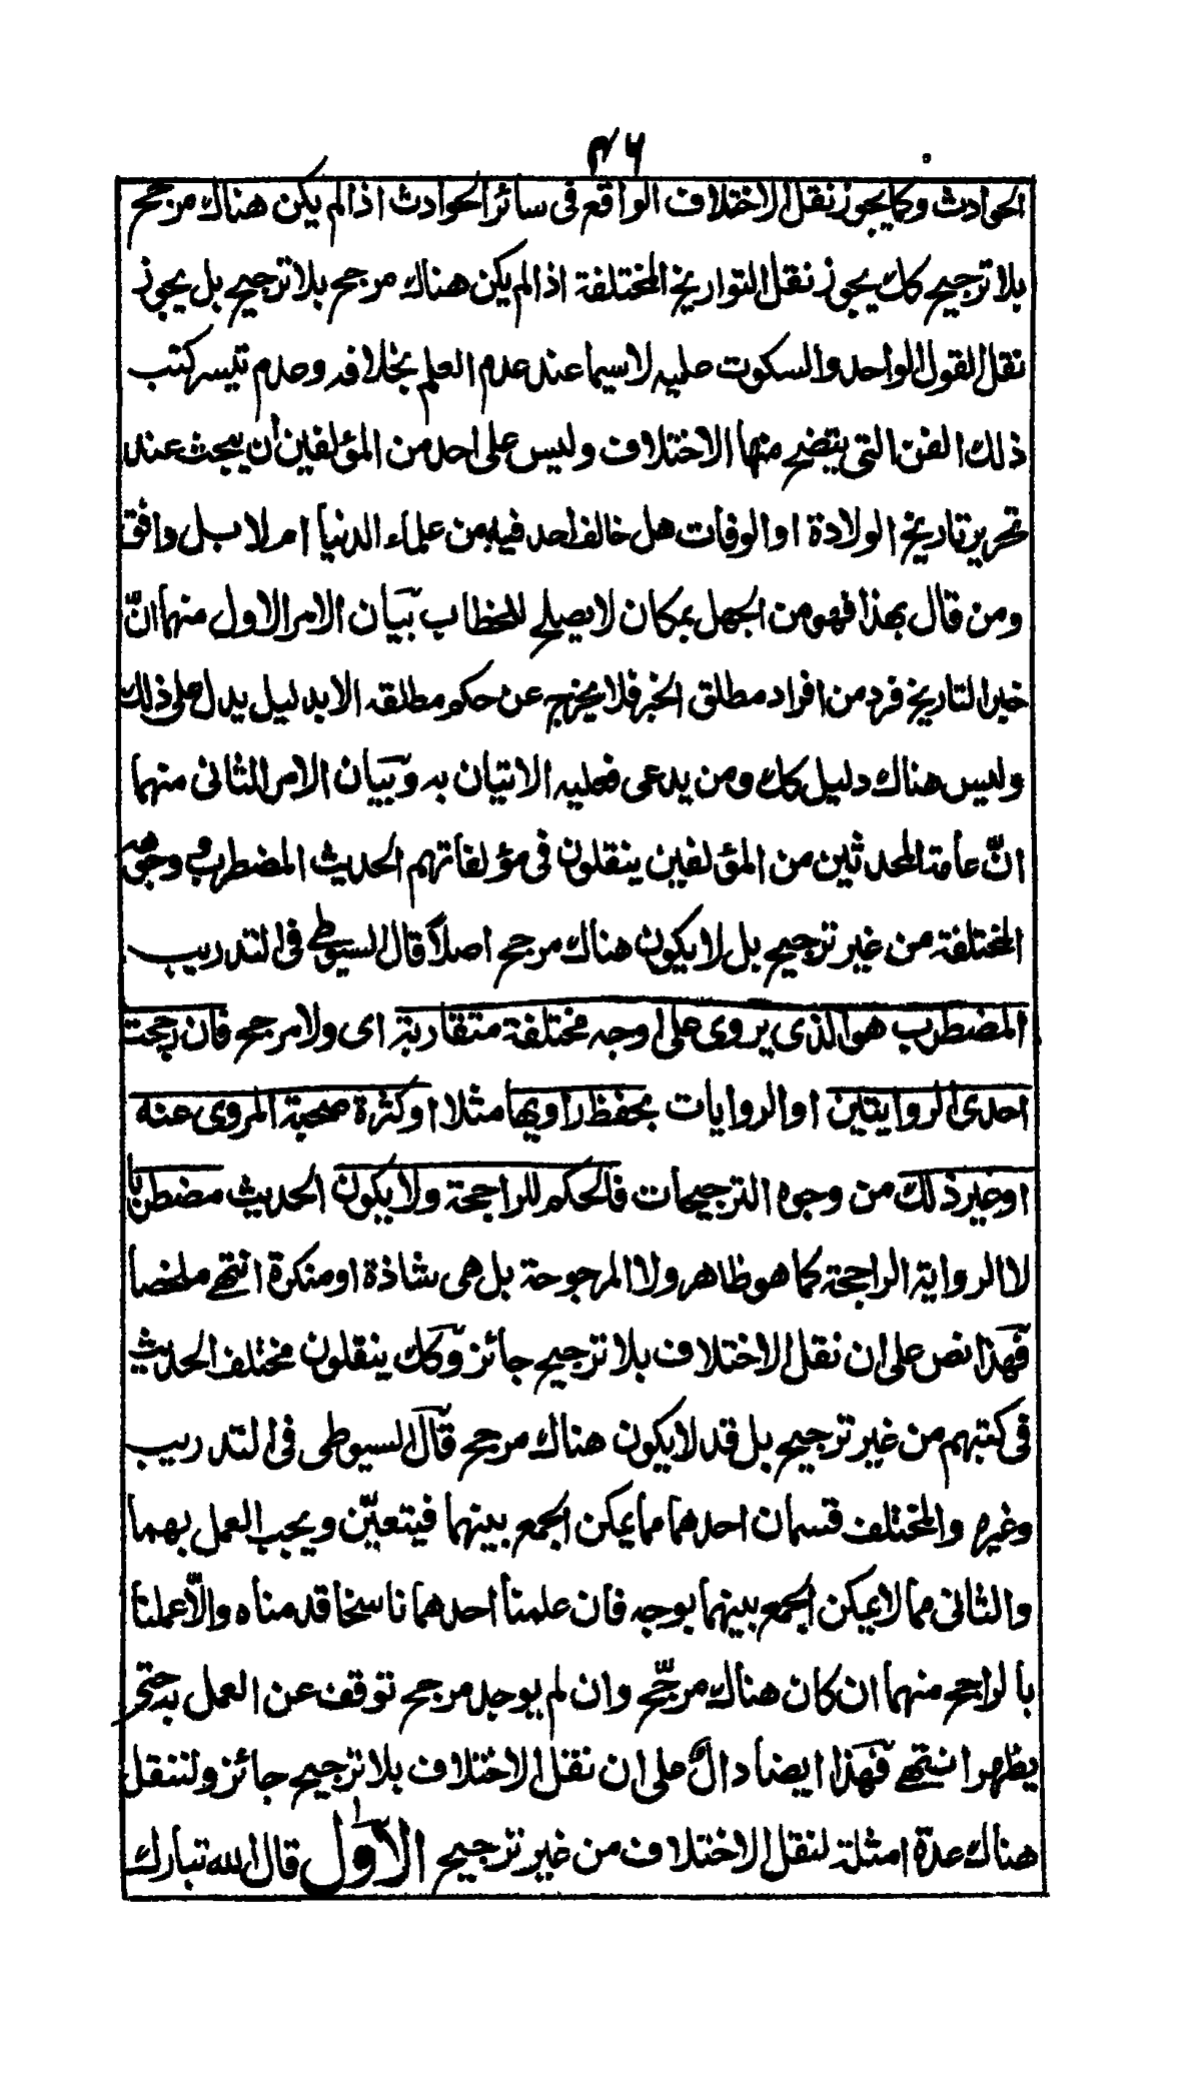 ۴۶
الحوادث وكما يجوز نقل الاختلاف الواقع فى سائر الحوادث اذا لم يكن هناك مرجح
بلا ترجيح كك يجوز نقل التواريخ المختلفة اذا لم يكن هناك مرجح بلا ترجيح بل يجوز
نقل القول الواحد والسكوت عليه لاسيما عند عدم العلم بخلافه وعدم تيسر كتب
ذلك الفن التى يتضح منها الاختلاف وليس على احد من المؤلفين أن يبحث عند
تحرير تاريخ الولادة او الوفات هل خالف احد فيه من علماء الدنيا ام لا بل وافق
ومن قال بهذا فهو من الجهل بمكان لا يصلح للخطاب بيان الامر الاول منهما انّ
خبر التاريخ فرد من افراد مطلق الخبر فلا يخرج عن حكم مطلقه الا بدليل يدل على ذلك
وليس هناك دليل كك ومن يدعى فعليه الاتيان به وبيان الامر الثانى منهما
انّ عامة المحدثين من المؤلفين ينقلون فى مؤلفاتهم الحديث المضطرب ووجوهه
المختلفة من غير ترجيح بل لا يكون هناك مرجح اصلاً قال السيوطى فى التدريب
المضطرب هو الذى يروى على اوجه مختلفة متقاربة اى ولا مرجح فان رجحت
احدى الروايتين او الروايات بحفظ راويها مثلا او كثرة صحبة المروى عنه
او غير ذلك من وجوه الترجيحات فالحكم للراجحة ولا يكون الحديث مضطربا
لا الرواية الراجحة كما هو ظاهر ولا المرجوحة بل هى شاذة او منكرة انتهى ملخصا
فهذا نص على ان نقل الاختلاف بلا ترجيح جائز وكك ينقلون مختلف الحديث
فى كتبهم من غير ترجيح بل قد لا يكون هناك مرجح قال السيوطى فى التدريب
وغيره والمختلف قسمان احدهما مما يمكن الجمع بينهما فيتعيّن ويجب العمل بهما
والثانى مما لا يمكن الجمع بينهما بوجه فان علمنا احدهما ناسخا قدمناه والّا عملنا
بالراجح منهما ان كان هناك مرجّح وان لم يوجد مرجح توقف عن العمل به حتى
يظهر انتهى فهذا ايضا دالّ على ان نقل الاختلاف بلا ترجيح جائز ولننقل
هناك عدّة امثلة لنقل الاختلاف من غير ترجيح الاول قال الله تبارك